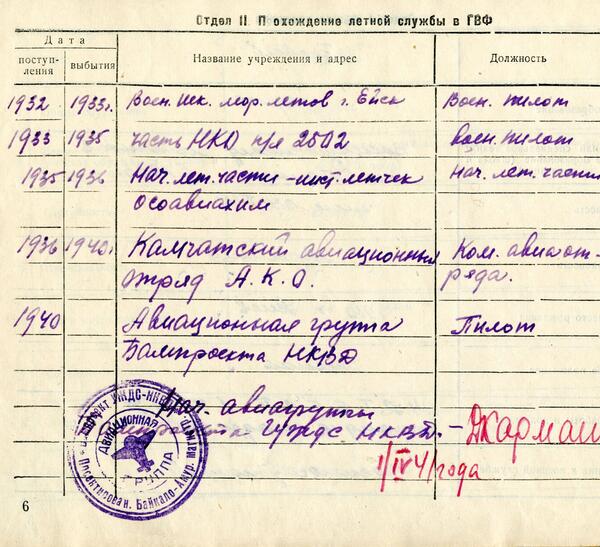 Отдел II. Похождение летной службы в ГВФ
Дата
поступ-
ления
выбытия
Название учреждения и адрес
Должность
1932 1933г. Воен. шк. мор. летов г. Ейск Воен. пилот
1933 1935 часть НКО п/я 2502 воен. пилот
1935 1936 Нач. лет. части – инст. летчек Нач. лет. части
Осоавиахим
1936 1940г. Камчатский авиационный Ком. авиаот-
отряд А.К.О. ряда.
1940 Авиационная группа Пилот
Бампроекта НКВД
Нач. авиагруппы
ГУЖДС НКВД. –
1/IV 41 года
АВИАЦИОННАЯ
ГРУППА
Байкало-Амур.
6